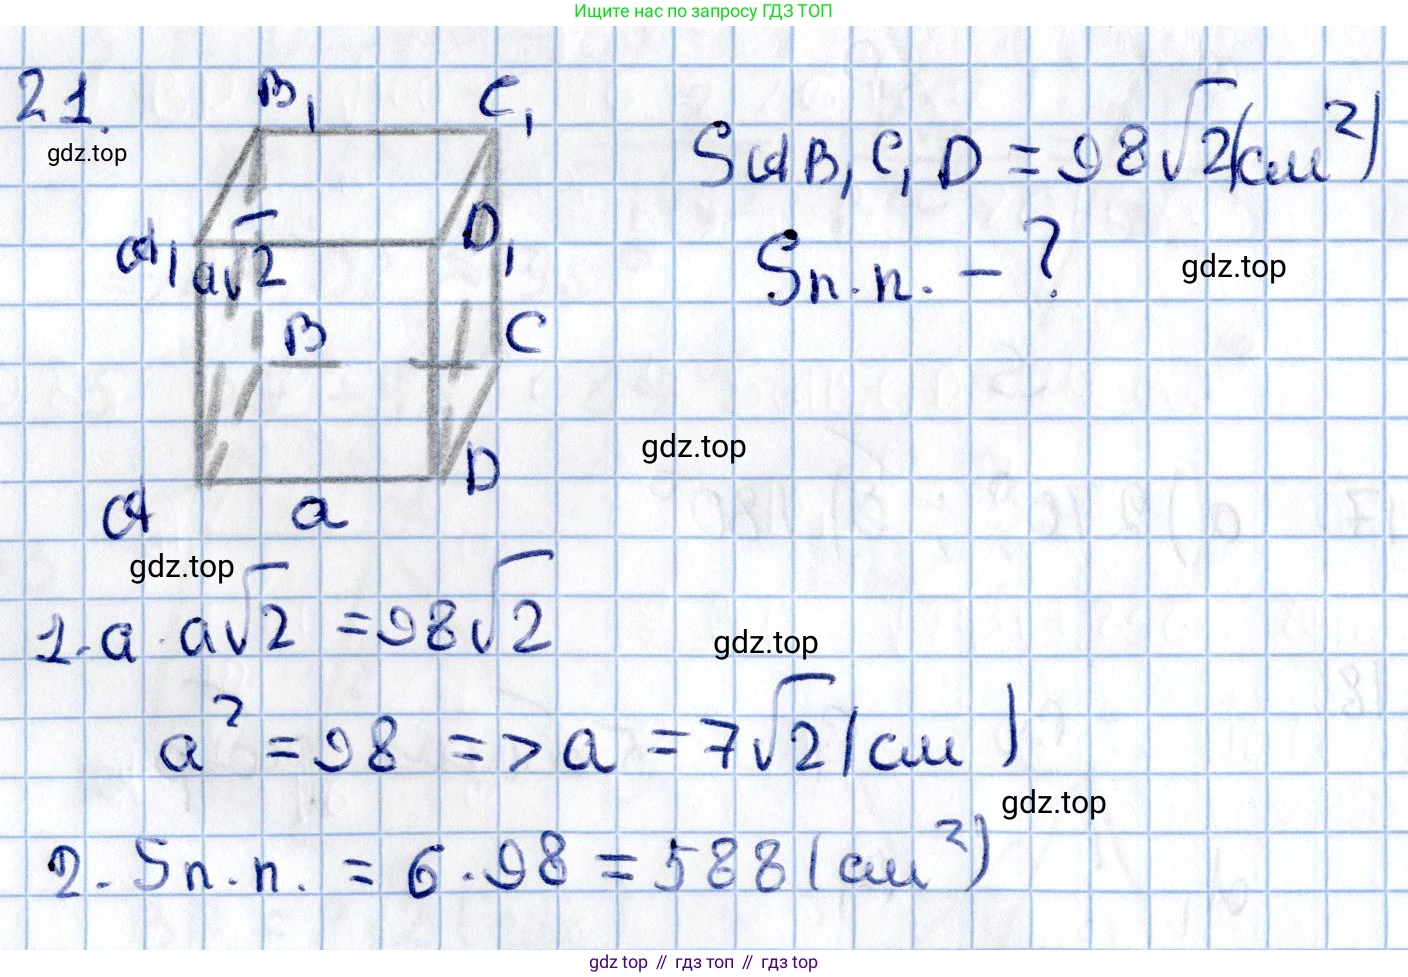 Ищите нас по запросу ГДЗ ТОП
21.
gdz.top
B₁ C₁
A₁ a√2 D₁
B C
A a D
S AB₁C₁D = 98√2 (см²)
Sп.п. – ?
gdz.top
gdz.top
gdz.top
1. a · a√2 = 98√2
gdz.top
a² = 98 => a = 7√2 (см)
gdz.top
2. Sп.п. = 6 · 98 = 588 (см²)
gdz top // гдз топ // гдз top